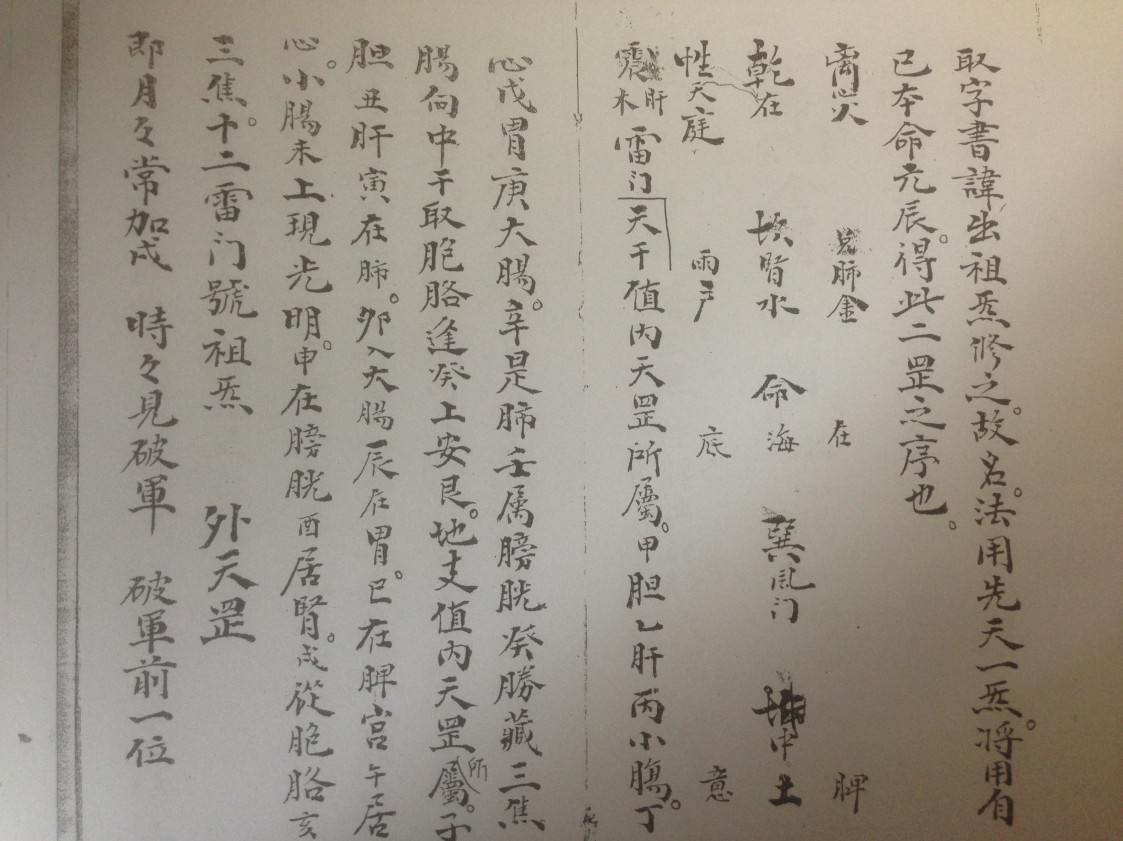 取字書諱出祖炁修之。故名。法用先天一炁。将用自
已本命元辰。得此二罡之序也。
离心火 兑肺金 在 脾
乾在 坎腎水 命海 巽風门 坤中土
性天庭 雨戶 底 意
震肝木雷门天干值内天罡所屬。甲胆乙肝丙小腸。丁
心戊胃庚大腸。辛是肺壬属膀胱癸勝藏三焦
腸向中干取胞胳逢癸上安艮。地支值内天罡所屬。子
胆丑肝寅在肺。卯入大腸辰在胃。巳在脾宫午居
心。小腸未上現光明。申在膀胱酉居腎。戌從胞胳亥
三焦。十二雷门號祖炁 外天罡
即月々常加戌 時々見破軍 破軍前一位